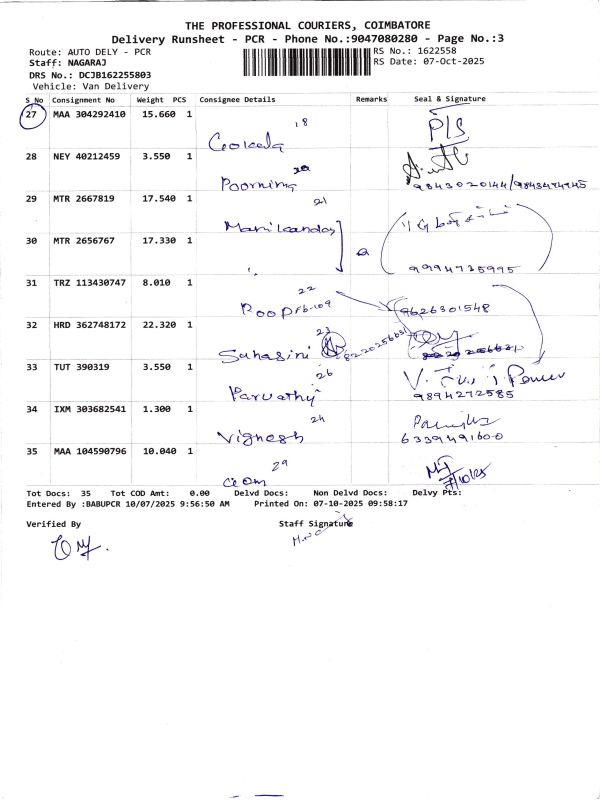 THE PROFESSIONAL COURIERS, COIMBATORE
Delivery Runsheet - PCR - Phone No.:9047080280 - Page No.:3
Route: AUTO DELY - PCR RS No.: 1622558
Staff: NAGARAJ RS Date: 07-Oct-2025
DRS No.: DCJB162255803
Vehicle: Van Delivery
S No Consignment No Weight PCS Consignee Details Remarks Seal & Signature
27 MAA 304292410 15.660 1 18 P/S
28 NEY 40212459 3.550 1
Poornima 9843020144/
29 MTR 2667819 17.540 1 21
Manikandas
30 MTR 2656767 17.330 1
9994735995
31 TRZ 113430747 8.010 1 22
Roop 9626301548
32 HRD 362748172 22.320 1 23
Suhasini 8220256631
33 TUT 390319 3.550 1 26
Parvathy 9894272585
34 IXM 303682541 1.300 1 24
Vignesh 6339491600
35 MAA 104590796 10.040 1 29
Tot Docs: 35 Tot COD Amt: 0.00 Delvd Docs: Non Delvd Docs: Delvy Pts:
Entered By :BABUPCR 10/07/2025 9:56:50 AM Printed On: 07-10-2025 09:58:17
Verified By Staff Signature